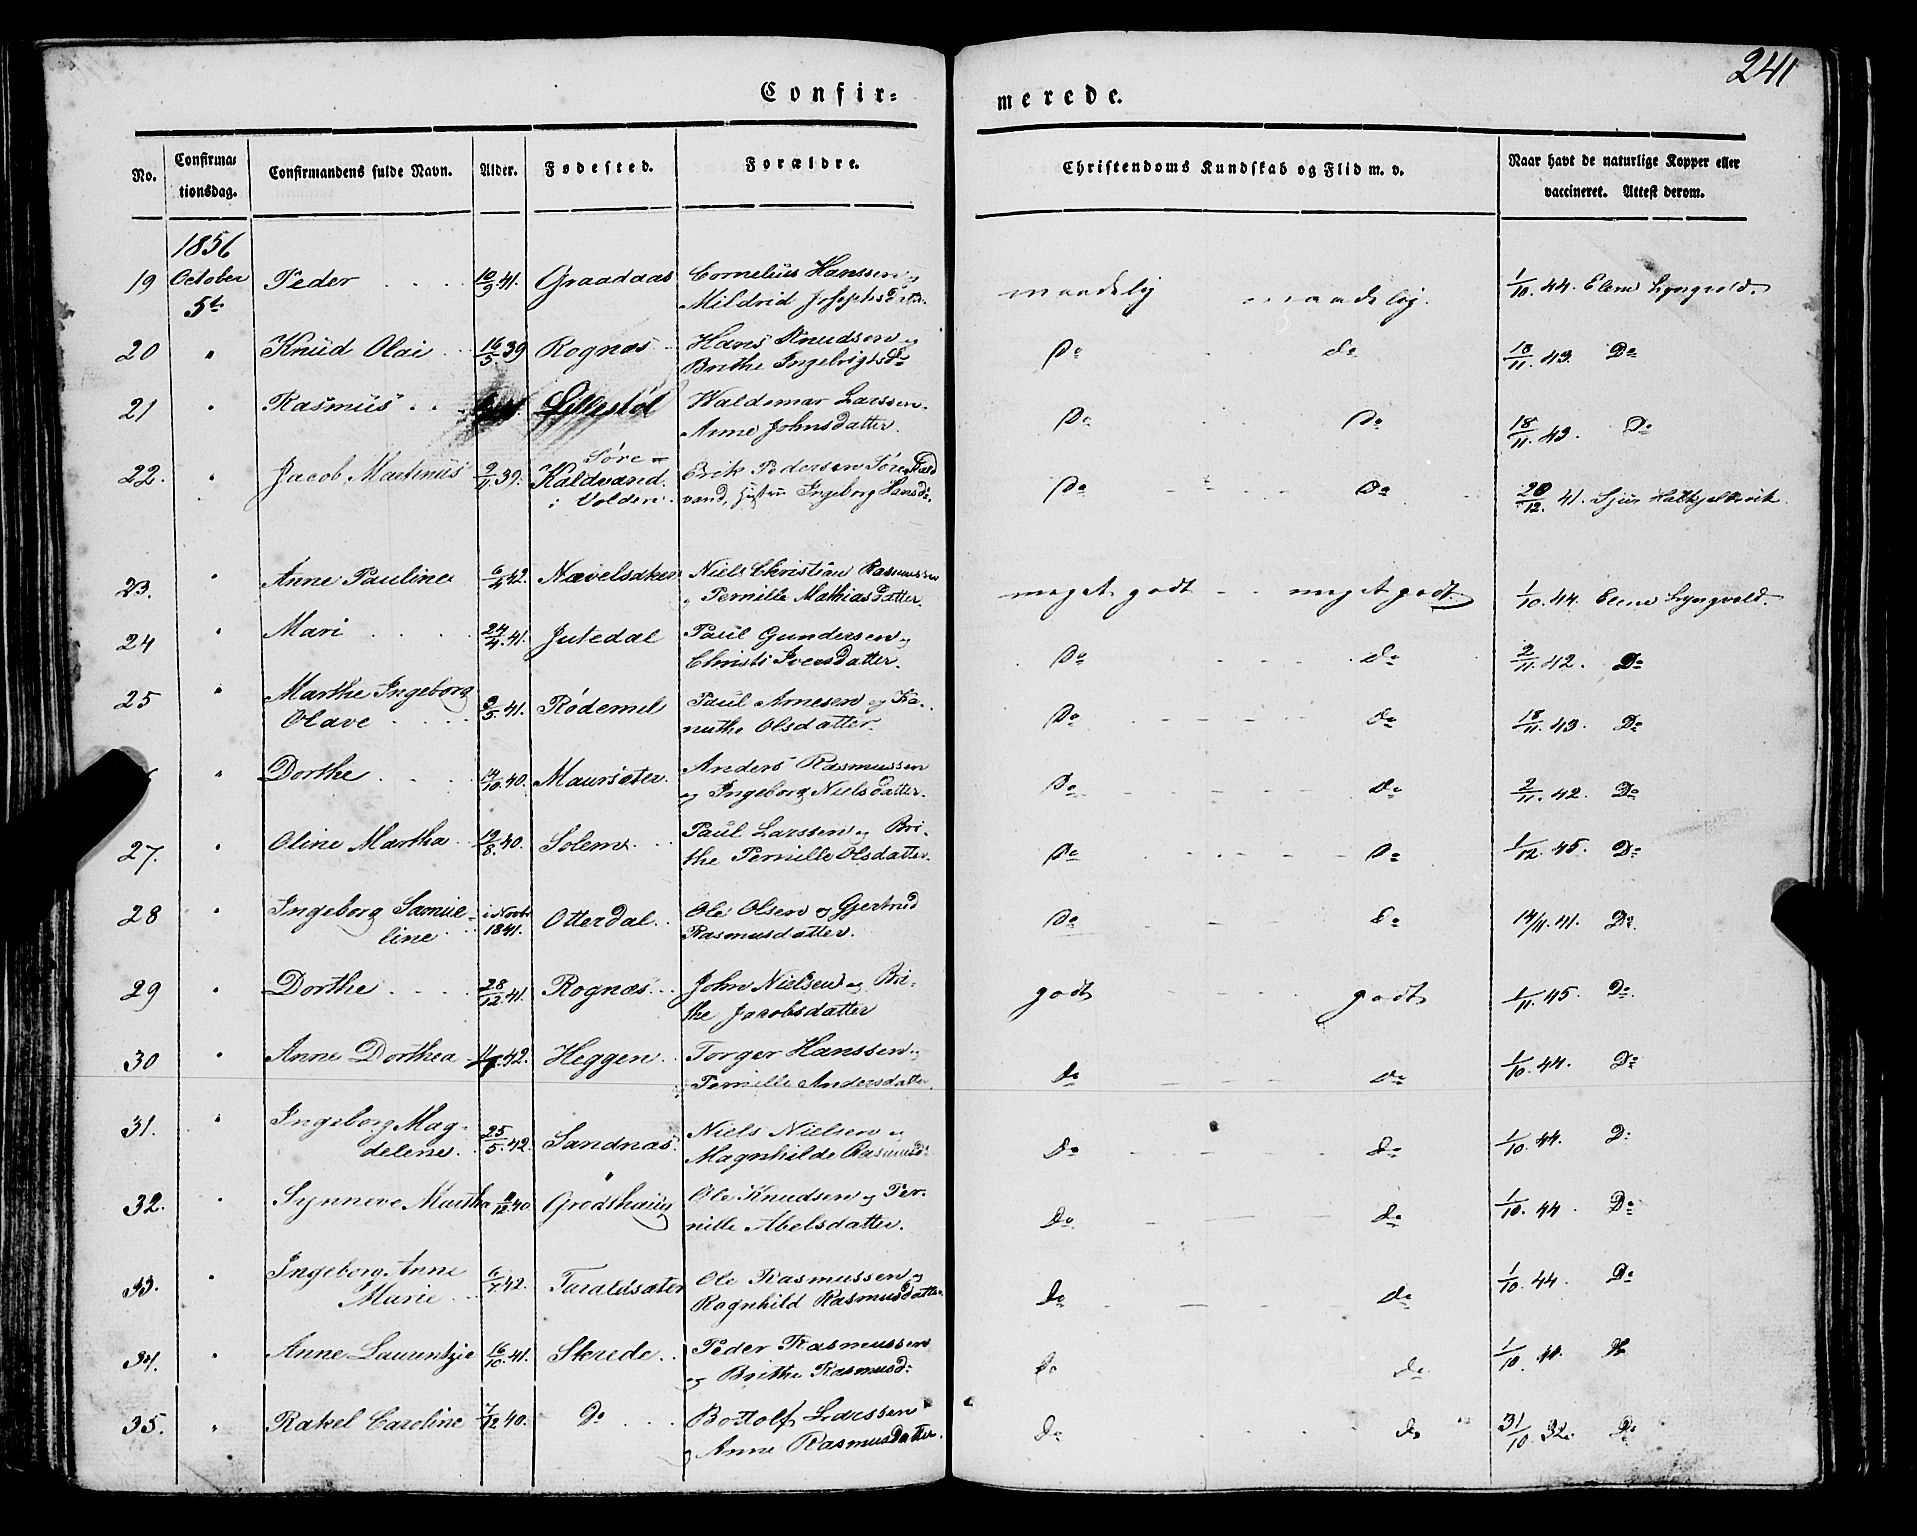 241
Confir= merede.
No. Confirma= tionsdag. Confirmandens fulde Navn. Alder. Fødested. Forældre. Christendoms Kundskab og Flid m. v. Naar havt de naturlige Kopper eller vaccineret. Attest derom.
1856
19 October Peder 10/9.41. Graadaas Cornelius Hanssen og maadelig maadelig. 1/10.44. Elene Lyngvold.
5te Mildrid Josephsdatr.
20 " Knud Olai 16/5.39 Rognæs Hans Knudsen og Do do 18/11.43. Do
Brithe Ingebrigtsdr
21 " Rasmus Lillestøl Waldemar Larssen. Do Do 18/11.43. Do
Anne Johnsdatter.
Søre=
22. " Jacob Martinus 9/11.39. Kaldvand Erik Pedersen Søre Kald Do Do 20/12.41. Sjur
i Volden. vand, hustru Ingeborg Hansd:
23. " Anne Pauline 6/4.42. Nævelsaker Niels Christian Rasmussen meget godt meget godt. 1/10.44. Elene Lyngvold.
og Pernille Mathiasdatter.
24 " Mari 24/4.41. Jutedal Paul Gundersen og Do do 2/11.42. Do
Christi Iversdatter.
25 " Marthe Ingeborg 9/5.41. Rødemel Paul Arnesen og Ka= Do do 18/11.43. Do
Olave nuthe Olsdatter.
" Dorthe 14/10.40. Maursæter. Anders Rasmussen Do do 2/11.42. Do
og Ingeborg Nielsdatter.
27. " Oline Martha 19/8.40. Solem Paul Larssen og Bri= Do Do 1/12.45. Do
the Pernille Olsdatter.
28 " Ingeborg Samue= i Novbr Otterdal Ole Olsen og Gjertrud Do do 14/11.41. Do.
line 1841. Rasmusdatter.
29 " Dorthe 28/12.41. Rognæs John Nielsen og Bri= godt godt 1/11.45. Do.
the Jacobsdatter
30 " Anne Dorthea 42. Heggen Torger Hanssen og do do 1/10.44. Do
Pernille Andersdatter.
31. " Ingeborg Mag= 25/5.42. Sandnæs. Niels Nielsen og Do do 1/10.44. D:
delene. Magnhilde Rasmusd:
32. " Synneve Martha 9/12.40. Grodthaug Ole Knudsen og Per= Do do 1/10.44. Do
nille Abelsdatter.
33. " Ingeborg Anne 6/7.42. Taraldsæter Ole Rasmussen og Do do 1/10.44. Do
Marie Ragnhild Rasmusdatter.
34. " Anne Laurentzie 16/10.41. Skrede Peder Rasmussen do do 1/10.44. Do
og Brithe Rasmusd:
35. " Rakel Caroline 7/12.40. Do Bottolf Larssen do do 31/10.32. Do
og Anne Rasmusdatter.